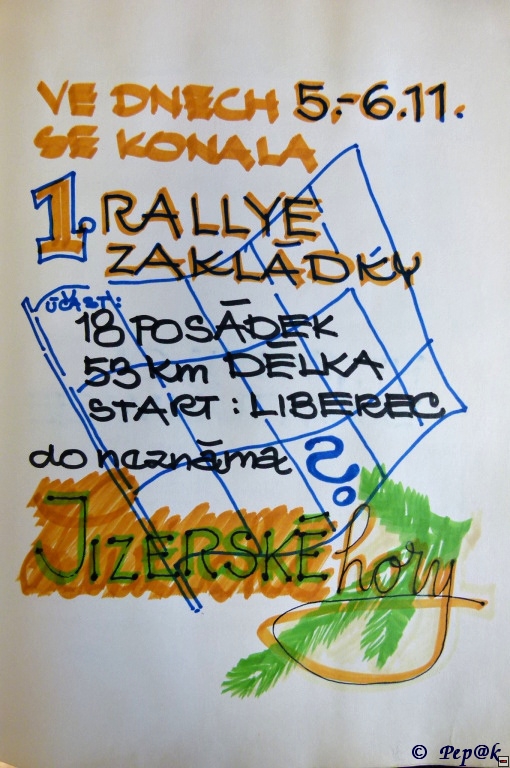 VE DNECH 5.-6.11.
SE KONALA
1. RALLYE
ZAKLÁDKY
ÚČAST:
18 POSÁDEK
53 km DÉLKA
START: LIBEREC
do neznáma ?
JIZERSKÉ hory
© Pep@k